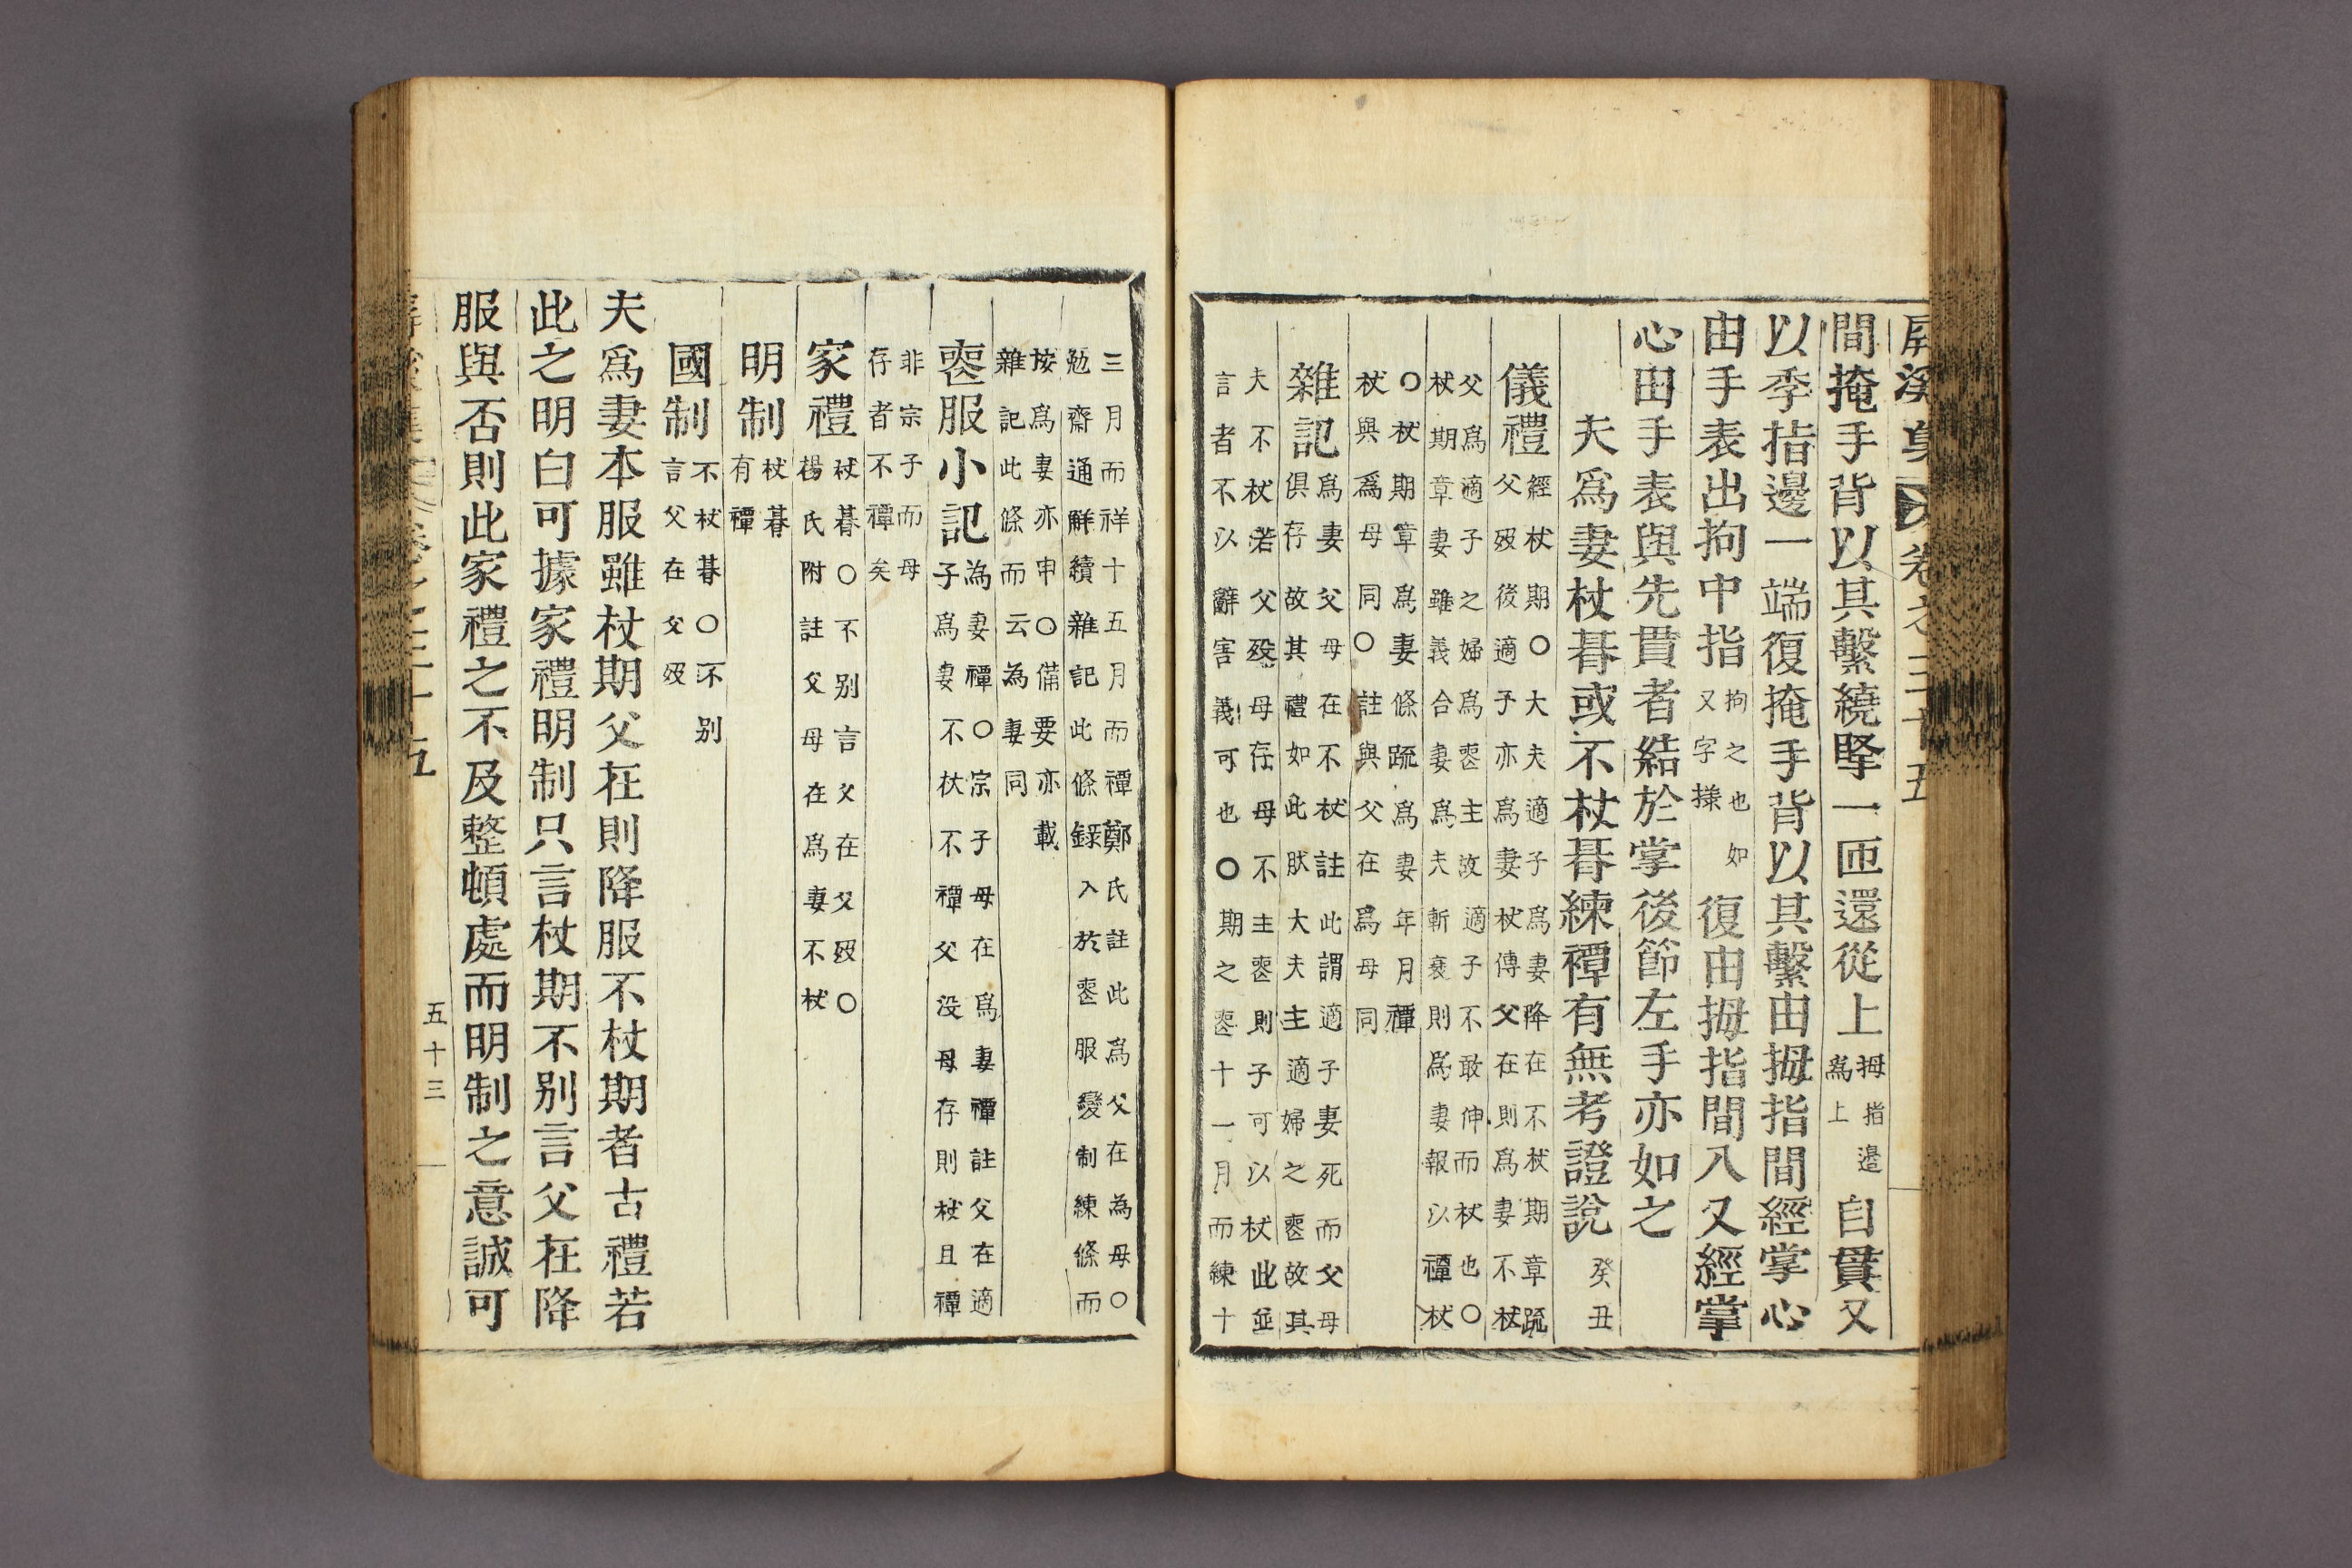 屛溪集卷之三十五
間掩手背以其繫繞掔一匝還從上拇指邉爲上自貫又
以季指邊一端復掩手背以其繫由拇指間經掌心
由手表出拘中指拘之也如又字樣復由拇指間入又經掌
心由手表與先貫者結於掌後節左手亦如之
夫爲妻杖朞或不杖朞練禫有無考證說癸丑
儀禮經杖期〇大夫適子爲妻降在不杖期章䟽
父歿後適子亦爲妻杖傳父在則爲妻不杖
父爲適子之婦爲喪主故適子不敢伸而杖也〇
杖期章妻雖義合妻爲夫斬衰則爲妻報以禫杖
〇杖期章爲妻條䟽爲妻年月禫
杖與爲母同〇註與父在爲母同
雜記爲妻父母在不杖註此謂適子妻死而父母
俱存故其禮如此肰大夫主適婦之喪故其
夫不杖若父歿母存母不主喪則子可以杖此並
言者不以辭害義可也〇期之喪十一月而練十
三月而祥十五月而禫鄭氏註此爲父在為母〇
勉齋通觧續雜記此條錄入於喪服變制練條而
按爲妻亦申〇備要亦載
雜記此條而云為妻同
喪服小記為妻禫〇宗子母在爲妻禫註父在適
子爲妻不杖不禫父没母存則杖且禫
非宗子而母
存者不禫矣
家禮杖朞〇不别言父在父歿〇
楊氏附註父母在爲妻不杖
明制杖朞
有禫
國制不杖朞〇不别
言父在父歿
夫爲妻本服雖杖期父在則降服不杖期者古禮若
此之明白可據家禮明制只言杖期不別言父在降
服與否則此家禮之不及整頓處而明制之意誠可
五十三